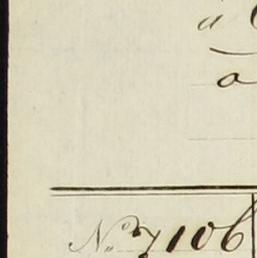 a
N.º 7106